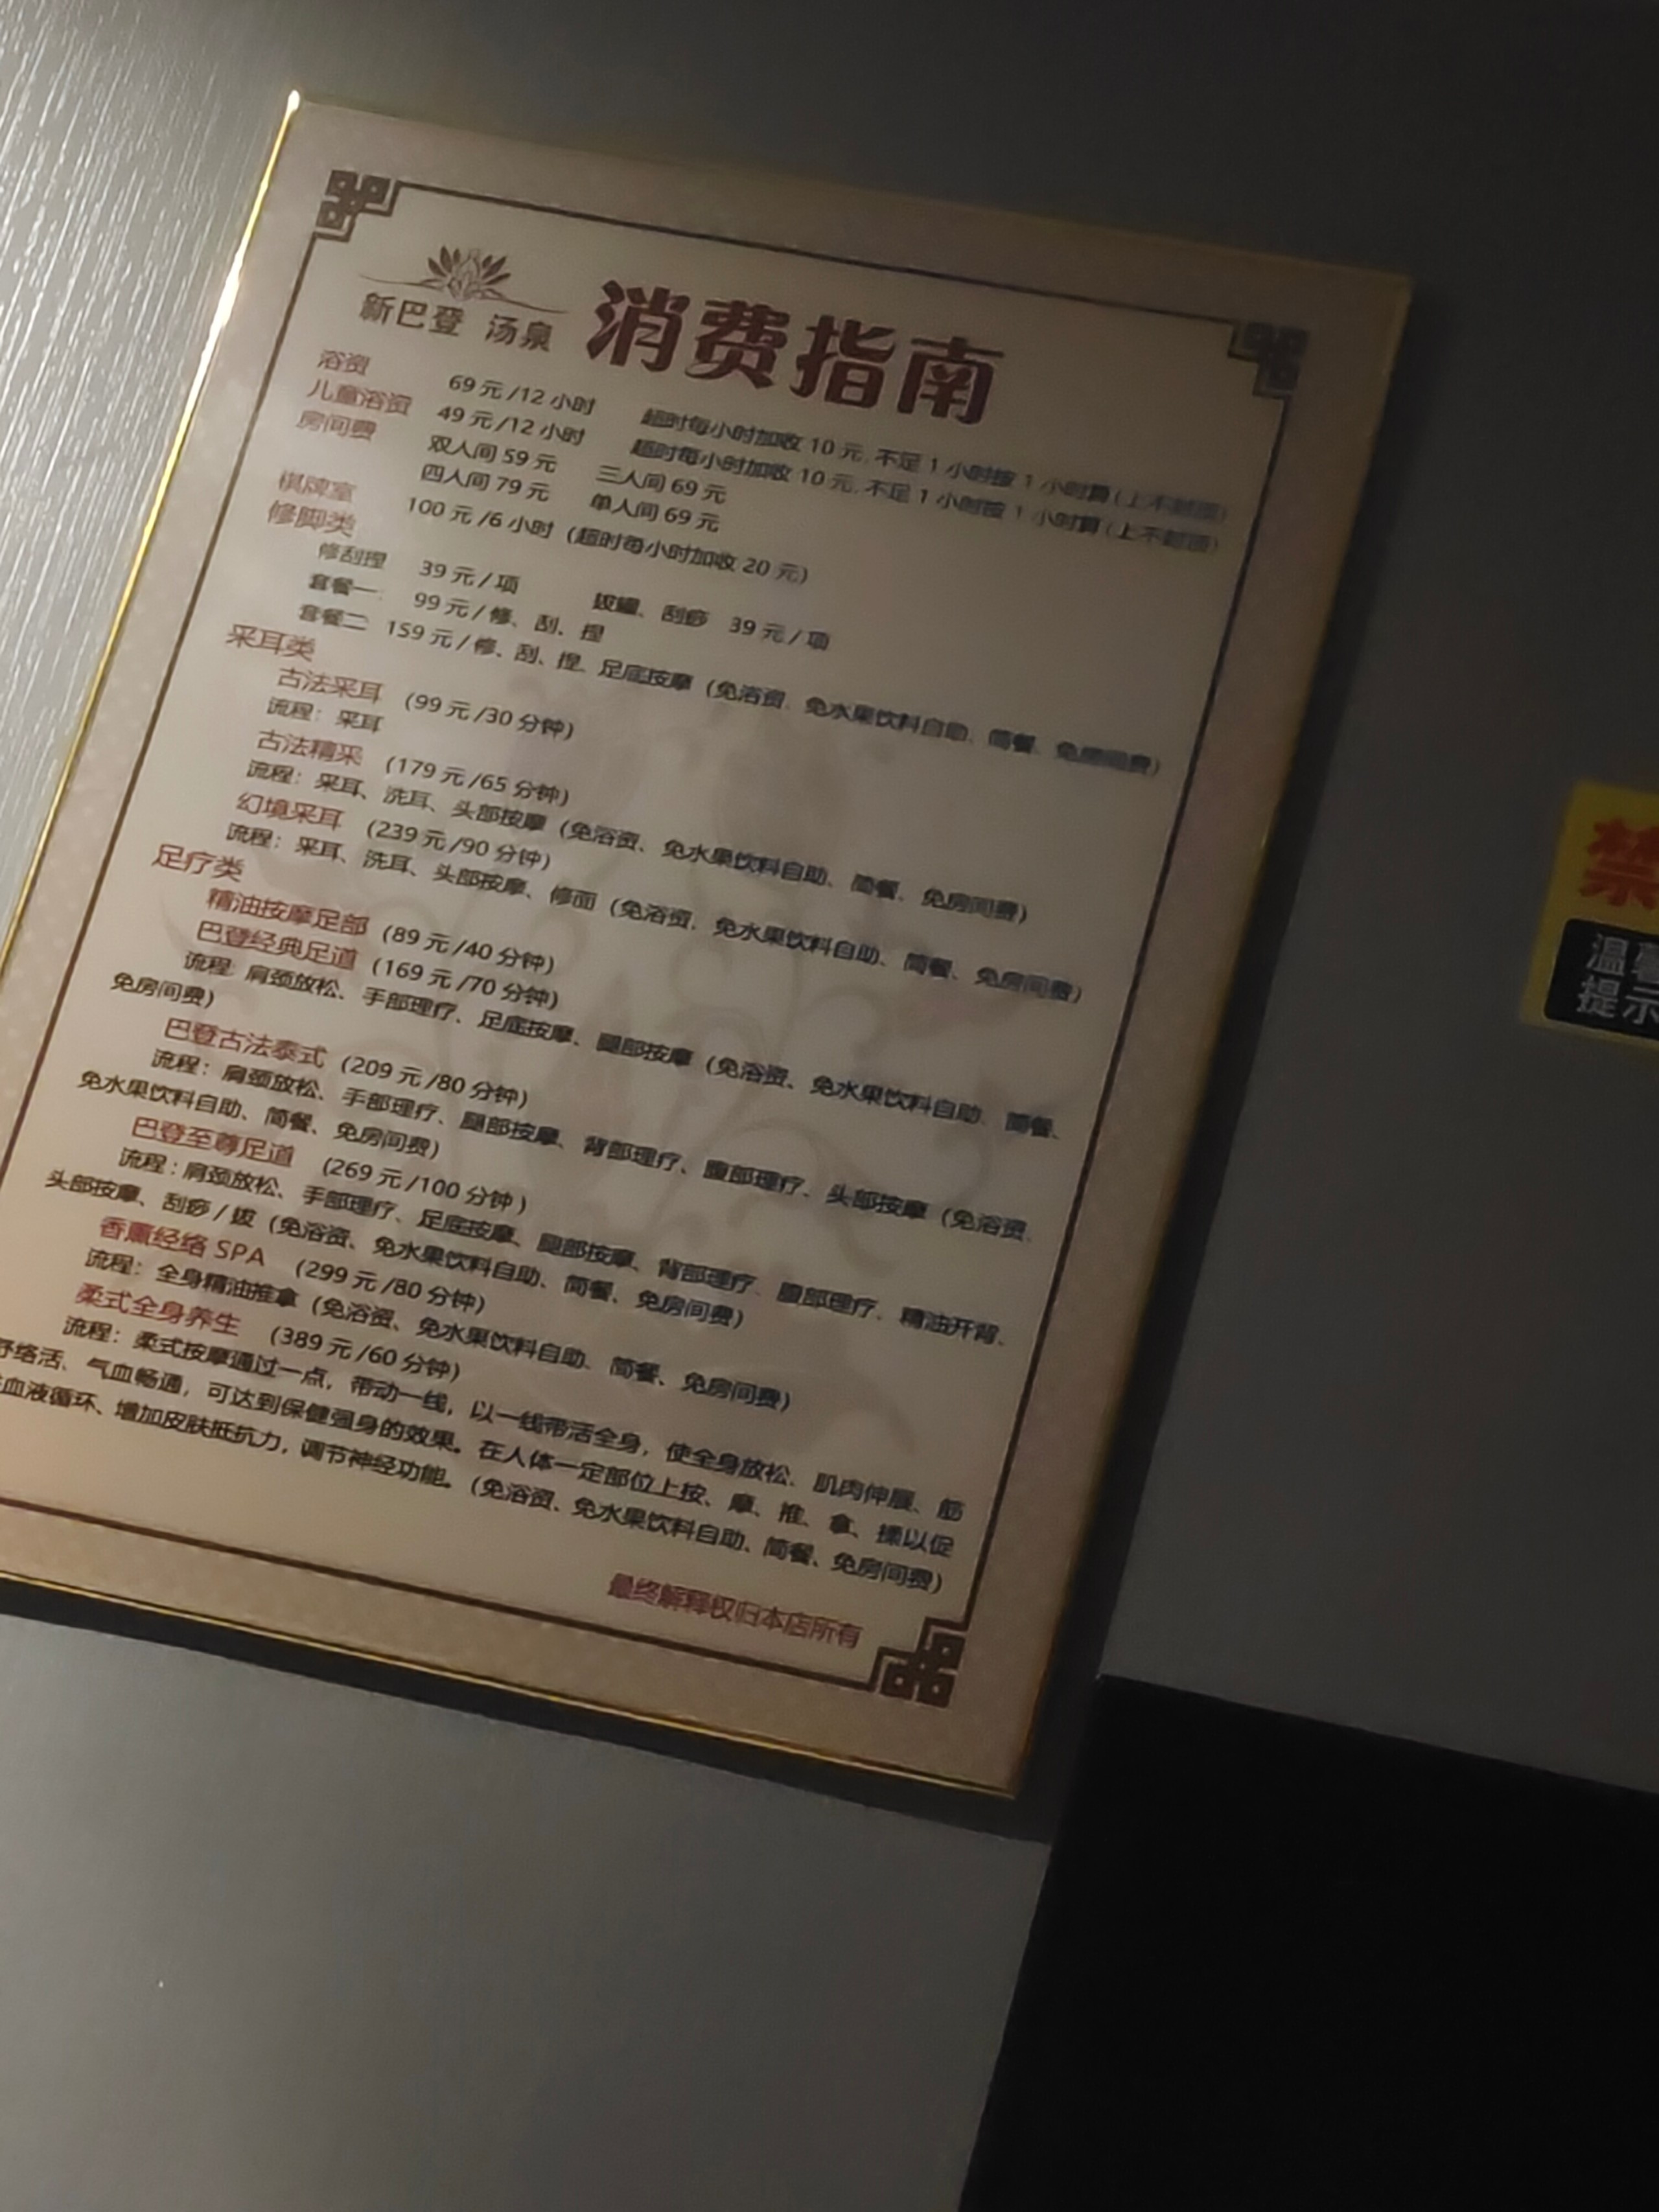 新巴登 汤泉
消费指南
浴资 69元/12小时 超时每小时加收10元,不足1小时按1小时算(上不封顶)
儿童浴资 49元/12小时 超时每小时加收10元,不足1小时按1小时算(上不封顶)
房间费 双人间59元 三人间69元
四人间79元 单人间69元
棋牌室 100元/6小时(超时每小时加收20元)
修脚类
修刮捏 39元/项 拔罐、刮痧 39元/项
套餐一 99元/修、刮、捏
套餐二 159元/修、刮、捏、足底按摩(免浴资、免水果饮料自助、简餐、免房间费)
采耳类
古法采耳 (99元/30分钟)
流程:采耳
古法精采 (179元/65分钟)
流程:采耳、洗耳、头部按摩(免浴资、免水果饮料自助、简餐、免房间费)
幻境采耳 (239元/90分钟)
流程:采耳、洗耳、头部按摩、修面(免浴资、免水果饮料自助、简餐、免房间费)
足疗类
精油按摩足部 (89元/40分钟)
巴登经典足道 (169元/70分钟)
流程:肩颈放松、手部理疗、足底按摩、腿部按摩(免浴资、免水果饮料自助、简餐、
免房间费)
巴登古法泰式 (209元/80分钟)
流程:肩颈放松、手部理疗、腿部按摩、背部理疗、腹部理疗、头部按摩(免浴资、
免水果饮料自助、简餐、免房间费)
巴登至尊足道 (269元/100分钟)
流程:肩颈放松、手部理疗、足底按摩、腿部按摩、背部理疗、腹部理疗、精油开背、
头部按摩、刮痧/拔(免浴资、免水果饮料自助、简餐、免房间费)
香薰经络SPA (299元/80分钟)
流程:全身精油推拿(免浴资、免水果饮料自助、简餐、免房间费)
柔式全身养生 (389元/60分钟)
流程:柔式按摩通过一点,带动一线,以一线带活全身,使全身放松、肌肉伸展、筋
舒络活、气血畅通,可达到保健强身的效果。在人体一定部位上按、摩、推、拿、揉以促
血液循环、增加皮肤抵抗力,调节神经功能。(免浴资、免水果饮料自助、简餐、免房间费)
最终解释权归本店所有
禁
温馨
提示